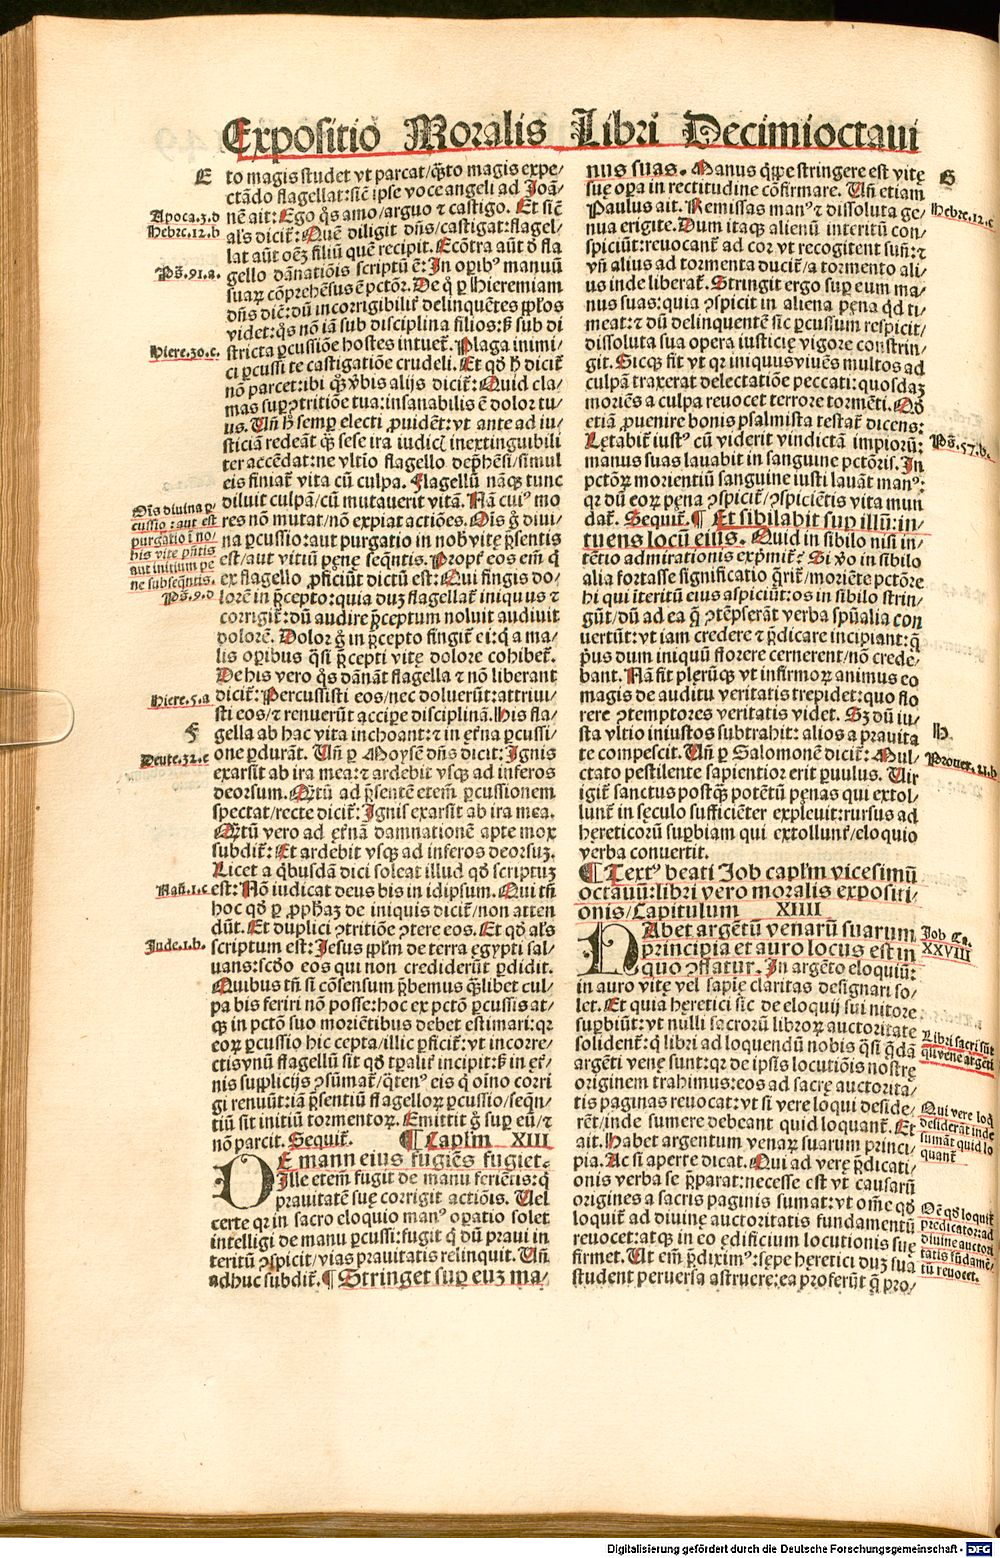 Expositio Moralis Libri Decimioctaui
E
to magis studet vt parcat/q̃sto magis expe/
ctãdo flagellat: siẽ ipse voce angeli ad Joã/
Apoca.3.d
nẽ ait: Ego q̃s amo/arguo ⁊ castigo. Et siẽ
Hebre.12.b
als dicit̃: Quẽ diligit dñs/castigat: flagel/
lat aũt oẽꝫ filiũ quẽ recipit. Ecõtra aũt ð fla
Ps̃.91.a.
gello dãnatiõis scriptũ ẽ: In oꝑibꝰ manuũ
suaꝝ cõprehẽsus ẽ pctõr. De q̃ ꝑ Hieremiam
dñs diẽ: dũ incorrigibilit̃ delinquẽtes ꝓplos
videt: q̃s nõ iã sub disciplina filios: sꝫ sub di
Hiere.30.c.
stricta ꝑcussiõe hostes intuet̃. Plaga inimi/
ci ꝑcussi te castigatiõe crudeli. Et qð hͦ dicit̃
nõ parcet: ibi qꝫ v̉bis alijs dicit̃: Quid cla/
mas suꝑ ↄtritiõe tua: insanabilis ẽ dolor tu/
us. Vñ hͦ semꝑ electi ꝓuidẽt: vt ante ad iu/
sticiã redeãt q̃ꝫ sese ira iudicĩ inextinguibili
ter accẽdat: ne vltĩo flagello dep̃hẽsi/simul
eis finiat̃ vita cũ culpa. Flagellũ nãcꝫ tunc
diluit culpã/cũ mutauerit vitã. Nã cuiꝰ mo
Oĩs diuina ꝑ
cussio: aut est
purgatio ĩ no/
bis vite p̃ntis
aut initium pe
ne subseq̃ntis.
res nõ mutat/nõ expiat actiões. Oĩs g̃ diui/
na ꝑcussio: aut purgatio in nob̃ vitę p̃sentis
est/aut vitiũ pęnę seq̃ntis. Propt̃ eos em̃ q̃
ex flagello ꝓficiũt dictũ est: Qui fingis do/
Ps̃.9.d
lorẽ in p̃cepto: quia duꝫ flagellat̃ iniquus ⁊
corrigit̃: dũ audire p̃ceptum noluit audiuit
dolorẽ. Dolor g̃ in p̃cepto fingit̃ ei: q̃ a ma/
lis oꝑibus q̃si p̃cepti vitę dolore cohibet̃.
De his vero q̃s dãnãt flagella ⁊ nõ liberant
Hiere.5.a
dicit̃: Percussisti eos/nec doluerũt: attriui/
sti eos/⁊ renuerũt accipe disciplinã. His fla/
F
gella ab hac vita inchoant: ⁊ in et̃na ꝑcussi/
Deute.32.c
one ꝑdurãt. Vñ ꝑ Moysẽ dñs dicit: Ignis
exarsit ab ira mea: ⁊ ardebit vsqꝫ ad inferos
deorsum. Q̃tũ ad p̃sentẽ etem̃ ꝑcussionem
spectat/recte dicit̃: Ignis exarsit ab ira mea.
Q̃tũ vero ad et̃nã damnationẽ apte mox
subdit̃: Et ardebit vsqꝫ ad inferos deorsuꝫ.
Licet a q̃busdã dici soleat illud qð scriptuꝫ
Naũ.1.c
est: Nõ iudicat deus bis in idipsum. Qui tñ
hoc qð ꝑ ꝓph̃aꝫ de iniquis dicit̃/non atten
dũt. Et duplici ↄtritiõe ↄtere eos. Et qð als̃
Jude.1.b.
scriptum est: Jesus ꝓpl̃m de terra ęgypti sal/
uans: scðo eos qui non crediderũt ꝑdidit.
Quibus tñ si cõsensum p̃bemus q̃libet cul/
pa bis feriri nõ posse: hoc ex pctõ ꝑcussis at/
qꝫ in pctõ suo moriẽtibus debet estimari: qꝛ
eoꝝ ꝑcussio hic cepta/illic ꝑficit̃: vt incorre/
ctis vnũ flagellũ sit qð tꝑalit̃ incipit: sꝫ in et̃/
nis supplicijs ↄsũmat̃/q̃tenꝰ eis q̃ oĩno corri
gi renuũt: iã p̃sentiũ flagelloꝝ ꝑcussio/seq̃n/
tiũ sit initiũ tormentoꝝ. Emittit g̃ suꝑ eũ/⁊
nõ parcit. Sequit̃. ¶ Capl̃m XIII
DE manu eius fugiẽs fugiet.
Ille etem̃ fugit de manu feriẽtis: q̃
prauitatẽ suę corrigit actiõis. Vel
certe qꝛ in sacro eloquio manꝰ oꝑatio solet
intelligi de manu ꝑcussi: fugit q̃ dũ praui in
teritũ ↄspicit/vias prauitatis relinquit. Vñ
adhuc subdit̃. ¶ Stringet suꝑ euꝫ ma/
nus suas. Manus q̃ꝑpe stringere est vitę
G
suę oꝑa in rectitudine cõfirmare. Vñ etiam
Paulus ait. Remissas manꝰ ⁊ dissoluta ge/
Hebre.12.c
nua erigite. Dum itaqꝫ alienũ interitũ con/
spiciũt: reuocant̃ ad cor vt recogitent suñ: ⁊
vñ alius ad tormenta ducit̃/a tormento ali/
us inde liberat̃. Stringit ergo suꝑ eum ma/
nus suas: quia ↄspicit in aliena pęna q̃d ti/
meat: ⁊ dũ delinquentẽ sic ꝑcussum respicit/
dissoluta sua opera iusticię vigore constrin/
git. Sicqꝫ fit vt qꝛ iniquus viuẽs multos ad
culpã traxerat delectatiõe peccati: quosdaꝫ
moriẽs a culpa reuocet terrore tormẽti. Qð
etiã ꝓuenire bonis psalmista testat̃ dicens:
Lętabit̃ iustꝰ cũ viderit vindictã impiorũ:
Ps̃.57.b.
manus suas lauabit in sanguine pctõris. In
pctõꝝ morientiũ sanguine iusti lauãt manꝰ:
qꝛ dũ eoꝝ pęna ↄspicit̃/ↄspiciẽtis vita mun
dat̃. Sequit̃. ¶ Et sibilabit suꝑ illũ: in/
tuens locũ eius. Quid in sibilo nisi in/
tẽtio admirationis exp̃mit̃? Si v̉o in sibilo
alia fortasse significatio q̃rit̃/moriẽte pctõre
hi qui iteritũ eius aspiciũt: os in sibilo strin/
gũt/dũ ad ea q̃ ↄtẽpserãt verba sp̃ualia con
uertũt: vt iam credere ⁊ p̃dicare incipiant: q̃
p̃us dum iniquũ florere cernerent/nõ crede/
bant. Nã fit plęrũqꝫ vt infirmoꝝ animus eo
magis de auditu veritatis trepidet: quo flo
rere ↄtemptores veritatis videt. Sꝫ dũ iu/
H.
sta vltio iniustos subtrahit: alios a prauita
te compescit. Vñ ꝑ Salomonẽ dicit̃: Mul/
Prouer.21.b
ctato pestilente sapientior erit ꝑuulus. Vir
igit̃ sanctus postq̃ꝫ potẽtũ pęnas qui extol/
lunt̃ in sęculo sufficiẽter expleuit: rursus ad
hęreticorũ suꝑbiam qui extollunt̃/eloquio
verba conuertit.
¶ Textꝰ beati Job capl̃m vicesimũ
octauũ: libri vero moralis expositi/
onis/Capitulum XIIII
HAbet argẽtũ venarũ suarum
Job Ca.
XXVIII
principia et auro locus est in
quo ↄflatur. In argẽto eloquiũ:
in auro vitę vel sapię claritas designari so/
let. Et quia heretici sic de eloquij sui nitore
suꝑbiũt: vt nulli sacrorũ libroꝝ auctoritate
Libri sacri sũt
q̃si vene argẽti
solident̃: q̃ libri ad loquendũ nobis q̃si q̃dã
argẽti venę sunt: qꝛ de ipsis locutiõis nostrę
originem trahimus: eos ad sacrę auctorita/
tis paginas reuocat: vt si vere loqui deside/
Qui vere loq̃
desiderãt inde
sumãt quid lo
quant̃
rẽt/inde sumere debeant quid loquant̃. Et
ait. Habet argentum venaꝝ suarum princi/
pia. Ac si aperte dicat. Qui ad verę p̃dicati/
onis verba se p̃parat: necesse est vt causarũ
origines a sacris paginis sumat: vt om̃e qð
Oẽ qð loquit̃
predicator: ad
diuine auctori
tatis fũdamẽ/
tũ reuocet.
loquit̃ ad diuinę auctoritatis fundamentũ
reuocet: atqꝫ in eo ędificium locutionis suę
firmet. Vt em̃ p̃diximꝰ: sępe hęretici duꝫ sua
student peruersa astruere: ea proferũt q̃ pro/
Digitalisierung gefördert durch die Deutsche Forschungsgemeinschaft - DFG